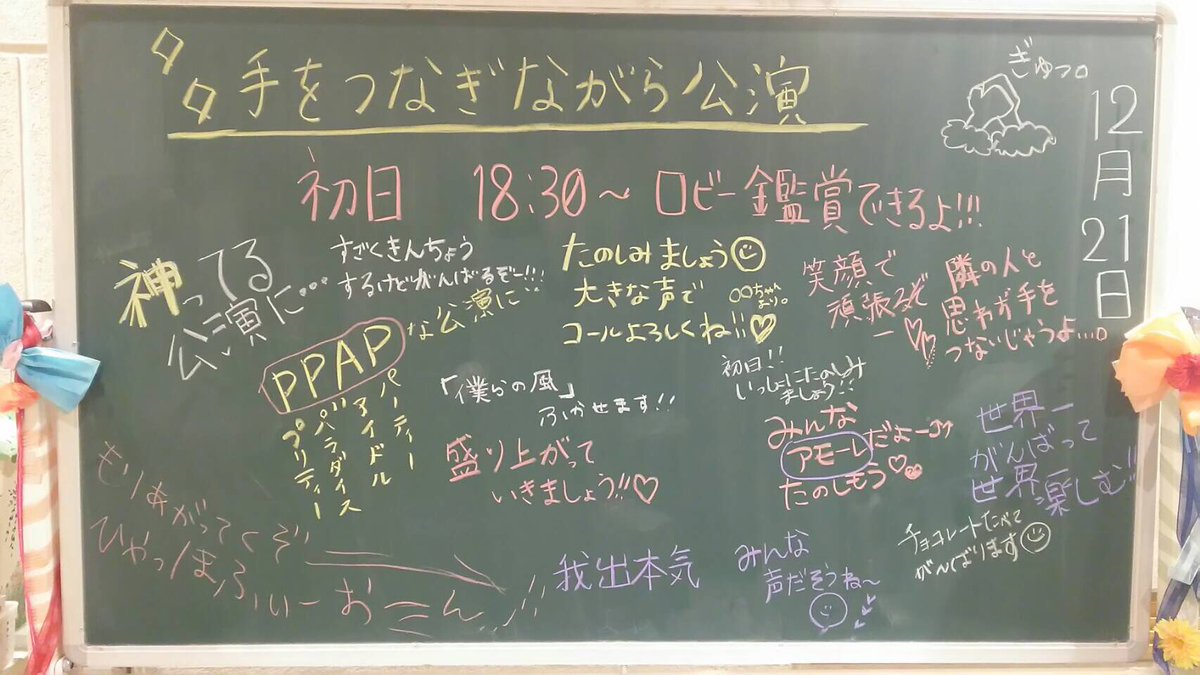 手をつなぎながら公演
ぎゅっ。
12月21日
初日 18:30～ ロビー鑑賞できるよ!!!
神ってる
公演に…
すごくきんちょう
するけどがんばるぞー!!!
PPAPな公演に
プリティー
パラダイス
アイドル
パーティー
たのしみましょう
大きな声で
コールよろしくね!!♡
笑顔で
頑張るぞ
ー♡
隣の人と
思わず手を
つないじゃうよ…。
「僕らの風」
ふかせます!!
初日!!
いっしょにたのしみ
ましょう!!
盛り上がって
いきましょう!!♡
みんな
アモーレだよーッッ
たのしもう♡
世界一
がんばって
世界一楽しむ!!
チョコレートたべて
がんばります
もりあがってくぞー
ひゃっほふぃーおーん!!
我出本気
みんな
声だそうね～